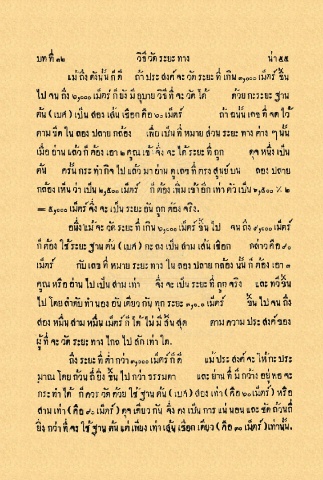 บทที่ ๑๒ วิธีวัดระยะทาง น่า ๕๕
แม้ถึงดังนั้นก็ดี ถ้าประสงค์จะวัดระยะที่เกิน ๑,๐๐๐ เมีตร์ ขึ้น
ไปจนถึง ๒,๐๐๐ เมีตร์ ก็ยังมีอุบายวิธีที่จะวัดได้ ด้วยกะระยะฐาน
ต้น (เบศ) เป็นสองเส้นเชือก คือ ๖๐ เมีตร์ ถ้าฉนั้นเลขที่จดไว้
ตามขีดในลองปลายกล้อง เพื่อเป็นที่หมายส่วนระยะทางต่าง ๆ นั้น
เมื่ออ่านแล้วก็ต้องเอา ๒ คูณเข้า ซึ่งจะได้ระยะที่ถูก ดุจหนึ่งเป็น
ต้น ครั้นกระทำกิจไปแล้วมาอ่านดูเลขที่ตรงสูนย์บน ลองปลาย
กล้องเห็นว่าเป็น ๒,๕๐๐ เมีตร์ ก็ต้องเพิ่มเข้าอีกเท่าตัวเป็น ๒,๕๐๐ × ๒
= ๕,๐๐๐ เมีตร์ ซึ่งจะเป็นระยะอันถูกต้องจริง.
อนึ่งแม้จะวัดระยะที่เกิน ๖,๐๐๐ เมีตร์ ขึ้นไป จนถึง ๙,๐๐๐ เมีตร์
ก็ต้องใช้ระยะฐานต้น (เบศ) กะลงเป็นสามเส้นเชือก กล่าวคือ ๙๐
เมีตร์ กับเลขที่หมายระยะทางในลองปลายกล้องนั้นก็ต้องเอา ๓
คูณ หรืออ่านไปเป็นสามเท่า ซึ่งจะเป็นระยะที่ถูกจริง และทวีขึ้น
ไปโดยลำดับทำนองอันเดียวกันทุกระยะ ๓,๐๐๐ เมีตร์ ขึ้นไปจนถึง
สองหมื่นสามหมื่นเมีตร์ก็ได้ไม่มีสิ้นสุด ตามความประสงค์ของ
ผู้ที่จะวัดระยะทางไกลไปสักเท่าใด.
ถึงระยะที่ต่ำกว่า ๓,๐๐๐ เมีตร์ก็ดี แม้ประสงค์จะให้กะประ
มาณโดยถ้วนถี่ยิ่งขึ้นไปกว่าธรรมดา และย่านที่มีกว้างอยู่พอจะ
กระทำได้ ก็ควรวัดด้วยใช้ฐานต้น (เบศ) สองเท่า (คือ ๖๐ เมีตร์) หรือ
สามเท่า (คือ ๙๐ เมีตร์) ดุจเดียวกัน ซึ่งคงเป็นการแน่นอนและชัดถ้วนถี่
ยิ่งกว่าที่จะใช้ฐานต้นแต่เพียงเท่าเส้นเชือกเดียว (คือ ๓๐ เมีตร์) เท่านั้น.